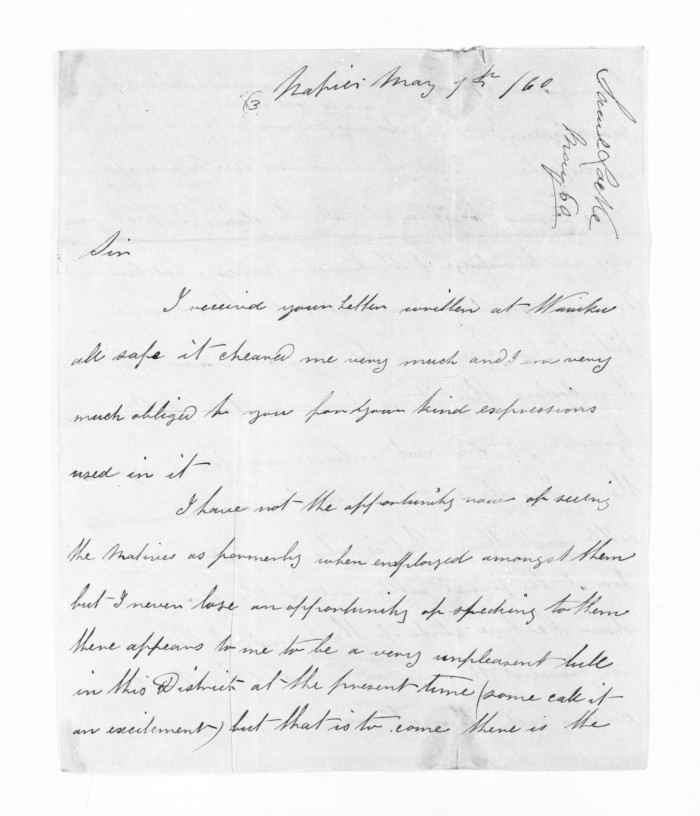 (3 Napier May 7th /60
Samuel Locke
May 60
Sir
I received your letter written at Waiuku
all safe it cheared me very much and I am very
much obliged to you for your kind expressions
used in it
I have not the opportunity now of seeing
the Natives as formerly when employed amongst them
but I never lose an opportunity of specking to them
there appears to me to be a very unpleasent lull
in this District at the present time (some call it
an excitement) but that is to come there is the